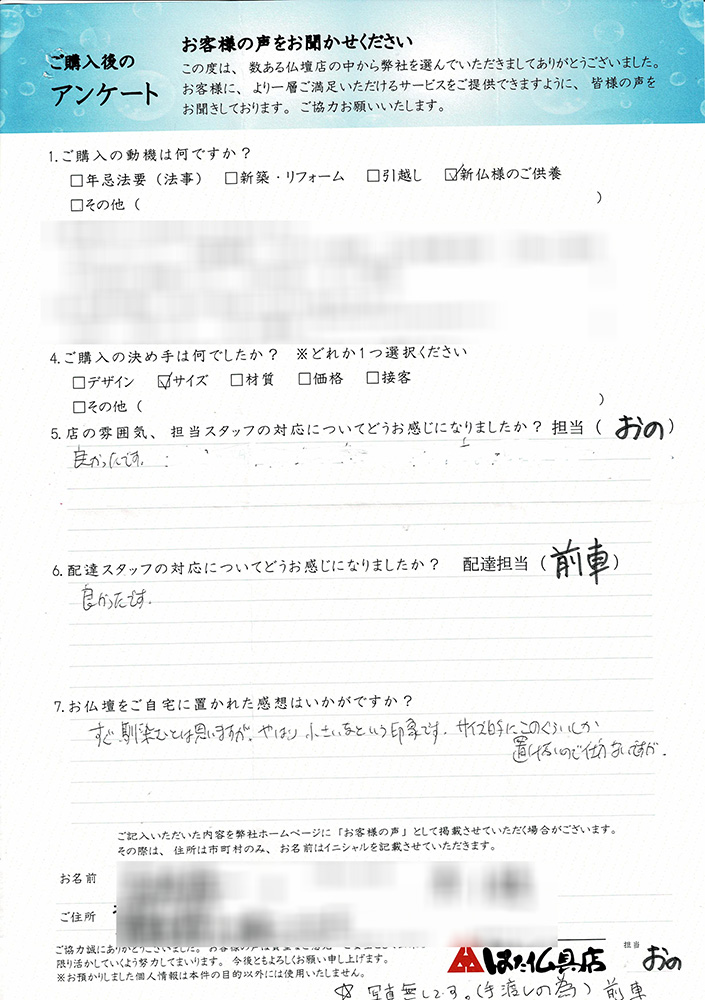 ご購入後の
アンケート
お客様の声をお聞かせください
この度は、数ある仏壇店の中から弊社を選んでいただきましてありがとうございました。
お客様に、より一層ご満足いただけるサービスをご提供できますように、皆様の声を
お聞きしております。ご協力お願いいたします。
1.ご購入の動機は何ですか?
□年忌法要(法事) □新築・リフォーム □引越し ☑新仏様のご供養
□その他( )
4.ご購入の決め手は何でしたか? ※どれか1つ選択ください
□デザイン ☑サイズ □材質 □価格 □接客
□その他( )
5.店の雰囲気、担当スタッフの対応についてどうお感じになりましたか?担当(おの)
良かったです。
6.配達スタッフの対応についてどうお感じになりましたか? 配達担当(前車)
良かったです。
7.お仏壇をご自宅に置かれた感想はいかがですか?
すぐ馴染むとは思いますが、やはり小さいなという印象です。サイズ的にこのくらいしか
置けないので仕方ないですが。
ご記入いただいた内容を弊社ホームページに「お客様の声」として掲載させていただく場合がございます。
その際は、住所は市町村のみ、お名前はイニシャルを記載させていただきます。
お名前
ご住所
ご協力誠にありがとうございました。お客様の声は貴重な
限り活かしていくよう努力してまいります。今後ともよろしくお願い申し上げます。
※お預かりしました個人情報は本件の目的以外には使用いたしません。
はた仏具店
担当 おの
☆写真無しです。(手渡しの為) 前車